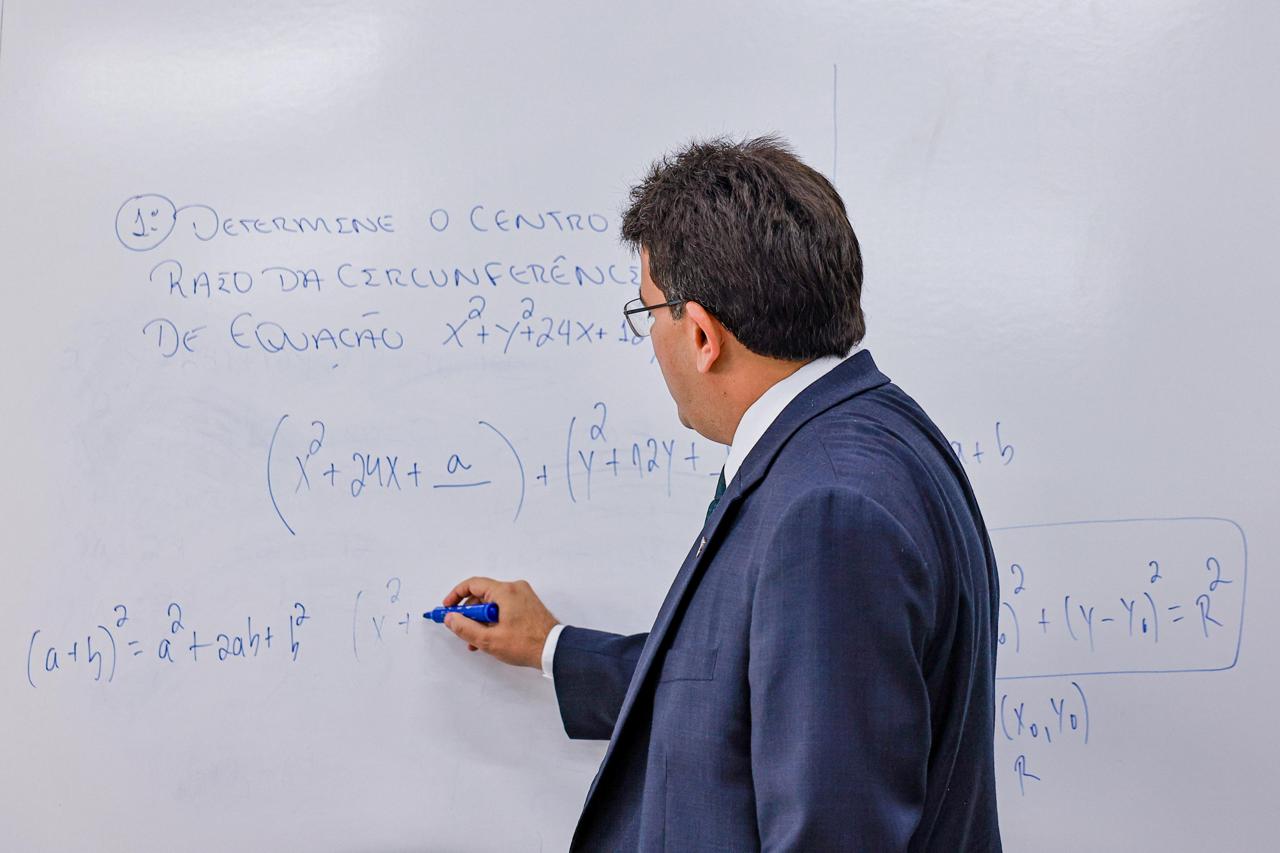 1º DETERMINE O CENTRO
RAIO DA CIRCUNFERÊNCI
DE EQUAÇÃO x²+y²+24x+1
(x²+24x+a)+(y²+12y+
a+b
(a+b)²=a²+2ab+b² (x²+
)²+(y-y₀)²=R²
(x₀,y₀)
R